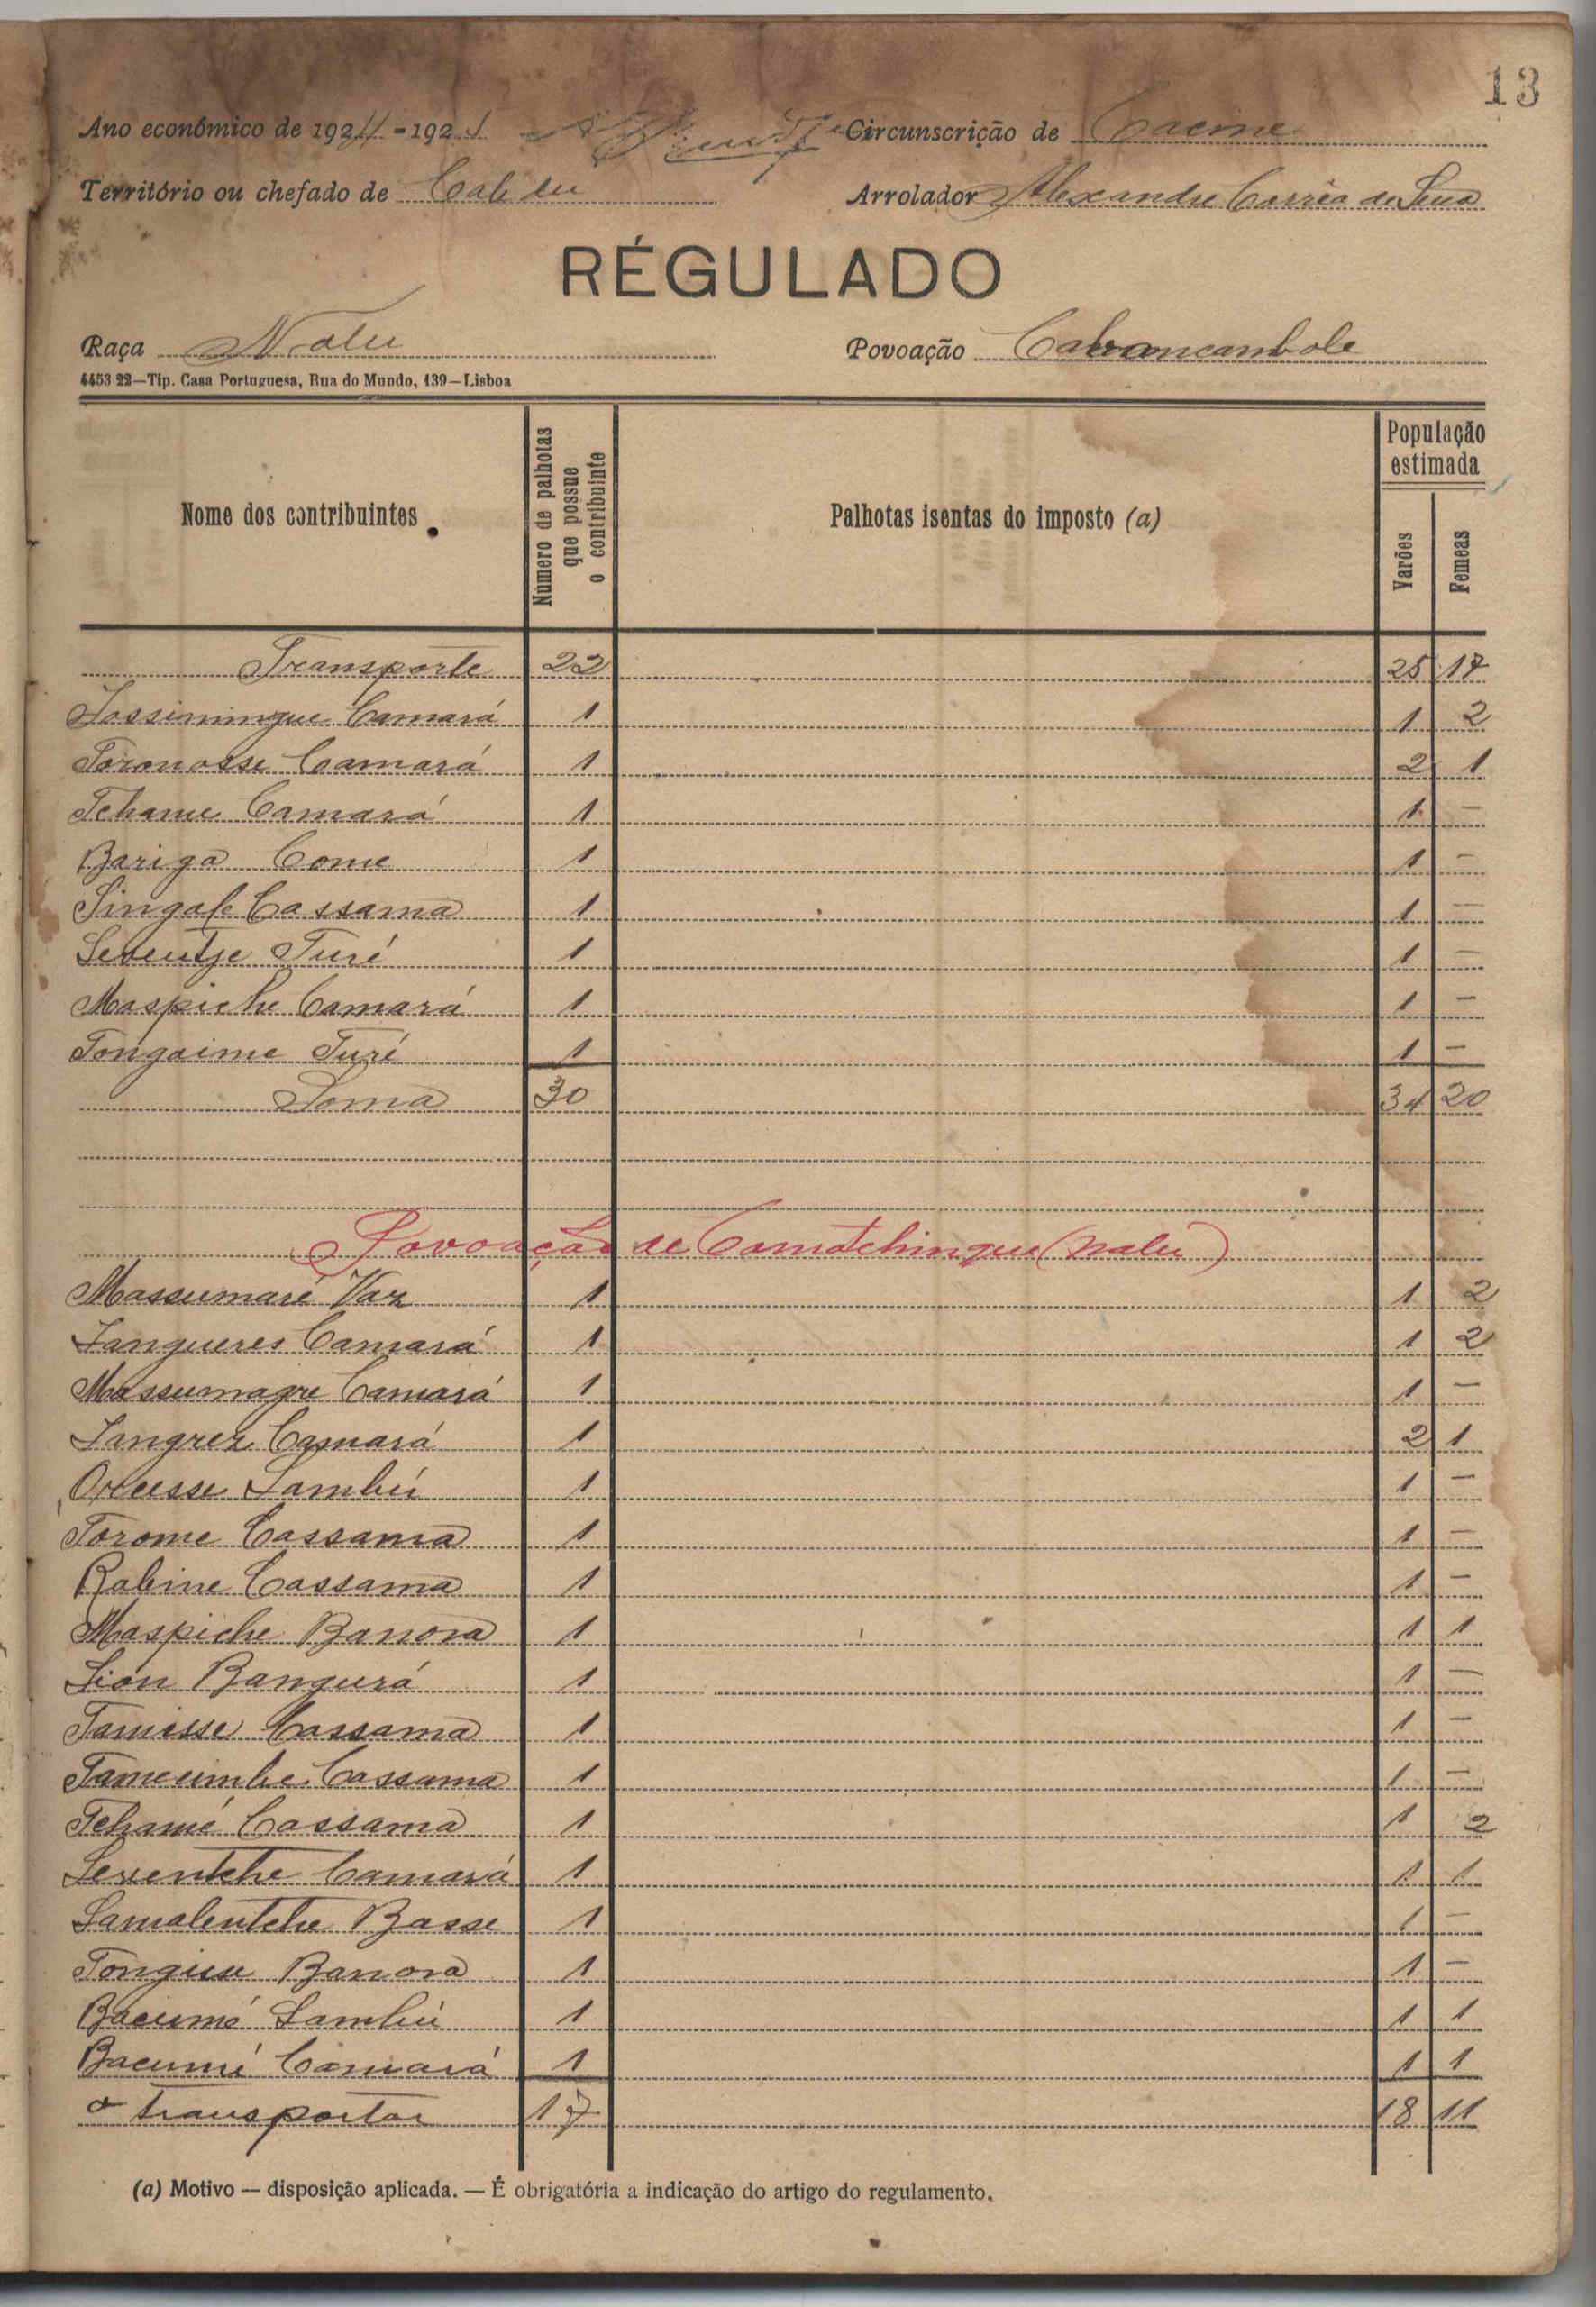 13
Ano económico de 1924-1925 Circunscrição de Cacine
Território ou chefado de Arrolador Alexandre Corrêa de Sena
RÉGULADO
Raça Nalu Povoação
4453 22—Tip. Casa Portuguesa, Rua do Mundo, 139—Lisboa
Nome dos contribuintes Número de palhotas que possue o contribuinte Palhotas isentas do imposto (a) População estimada Varões Femeas
Transporte 22 25 17
Camará 1 1 2
Toronosse Camará 1 2 1
Tchame Camará 1 1 —
Bariga Come 1 1 —
Singafe Cassama 1 1 —
Turé 1 1 —
Maspiche Camará 1 1 —
Tongaime Turé 1 1 —
Soma 30 34 20
Povoação de Camatchingue (Nalu)
Massumaré Vaz 1 1 2
Langueres Camará 1 1 2
Massumagre Camará 1 1 —
Langrez Camará 1 2 1
Sambú 1 1 —
Torome Cassama 1 1 —
Rabine Cassama 1 1 —
Maspiche Banora 1 1 1
Sion Bangurá 1 1 —
Tamisse Cassama 1 1 —
Tamecimbe Cassama 1 1 —
Tchamé Cassama 1 1 2
Camará 1 1 1
Samalentche Basse 1 1 —
Banora 1 1 —
Bacumé Sambú 1 1 1
Bacumé Camará 1 1 1
a transportar 17 18 11
(a) Motivo — disposição aplicada. — É obrigatória a indicação do artigo do regulamento.